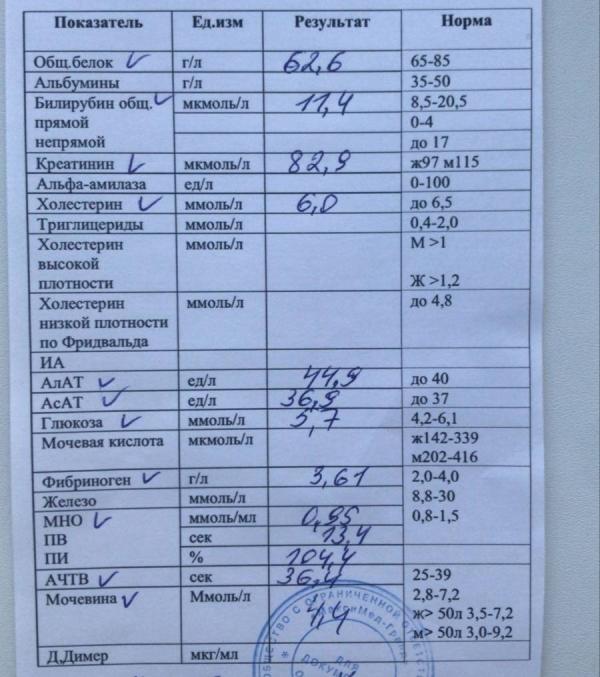 Показатель Ед.изм Результат Норма
Общ.белок г/л 62,6 65-85
Альбумины г/л 35-50
Билирубин общ. мкмоль/л 11,4 8,5-20,5
прямой 0-4
непрямой до 17
Креатинин мкмоль/л 82,9 ж97 м115
Альфа-амилаза ед/л 0-100
Холестерин ммоль/л 6,0 до 6,5
Триглицериды ммоль/л 0,4-2,0
Холестерин ммоль/л М >1
высокой
плотности Ж >1,2
Холестерин ммоль/л до 4,8
низкой плотности
по Фридвальда
ИА
АлАТ ед/л 44,9 до 40
АсАТ ед/л 36,9 до 37
Глюкоза ммоль/л 5,7 4,2-6,1
Мочевая кислота мкмоль/л ж142-339
м202-416
Фибриноген г/л 3,61 2,0-4,0
Железо ммоль/л 8,8-30
МНО ммоль/мл 0,95 0,8-1,5
ПВ сек 13,4
ПИ % 104,4
АЧТВ сек 36,4 25-39
Мочевина Ммоль/л 2,8-7,2
ж> 50л 3,5-7,2
м> 50л 3,0-9,2
Д.Димер мкг/мл
ОБЩЕСТВО С ОГРАНИЧЕННОЙ
ДЛЯ